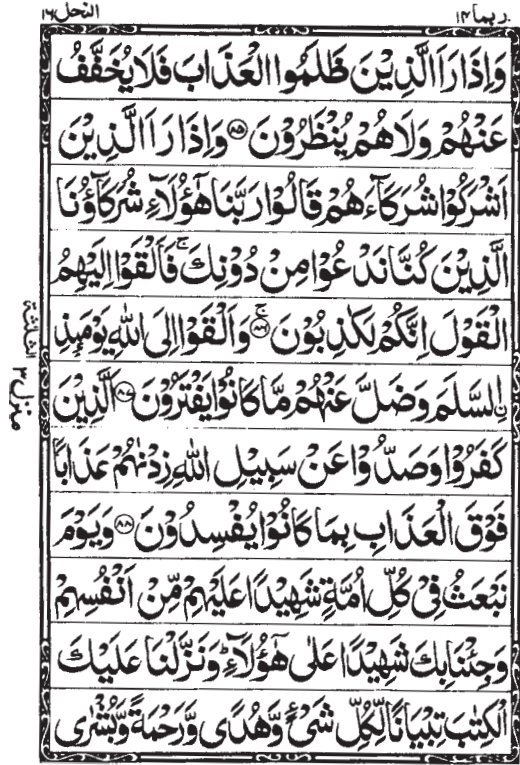 ربما ١٤ النحل ١٦
وَاِذَا رَاَ الَّذِيْنَ ظَلَمُوا الْعَذَابَ فَلَا يُخَفَّفُ
عَنْهُمْ وَلَا هُمْ يُنْظَرُوْنَ ﴿٨٥﴾ وَاِذَا رَاَ الَّذِيْنَ
اَشْرَكُوْا شُرَكَآءَهُمْ قَالُوْا رَبَّنَا هٰٓؤُلَآءِ شُرَكَآؤُنَا
الَّذِيْنَ كُنَّا نَدْعُوْا مِنْ دُوْنِكَ ۚ فَاَلْقَوْا اِلَيْهِمُ
الْقَوْلَ اِنَّكُمْ لَكٰذِبُوْنَ ۚ ﴿٨٦﴾ وَاَلْقَوْا اِلَى اللّٰهِ يَوْمَىِٕذِ
ِۨالسَّلَمَ وَضَلَّ عَنْهُمْ مَّا كَانُوْا يَفْتَرُوْنَ ﴿٨٧﴾ اَلَّذِيْنَ
كَفَرُوْا وَصَدُّوْا عَنْ سَبِيْلِ اللّٰهِ زِدْنٰهُمْ عَذَابًا
فَوْقَ الْعَذَابِ بِمَا كَانُوْا يُفْسِدُوْنَ ﴿٨٨﴾ وَيَوْمَ
نَبْعَثُ فِيْ كُلِّ اُمَّةٍ شَهِيْدًا عَلَيْهِمْ مِّنْ اَنْفُسِهِمْ
وَجِئْنَا بِكَ شَهِيْدًا عَلٰى هٰٓؤُلَآءِ ؕ وَنَزَّلْنَا عَلَيْكَ
الْكِتٰبَ تِبْيَانًا لِّكُلِّ شَيْءٍ وَّهُدًى وَّرَحْمَةً وَّبُشْرٰى
منزل ٣
الثلثة